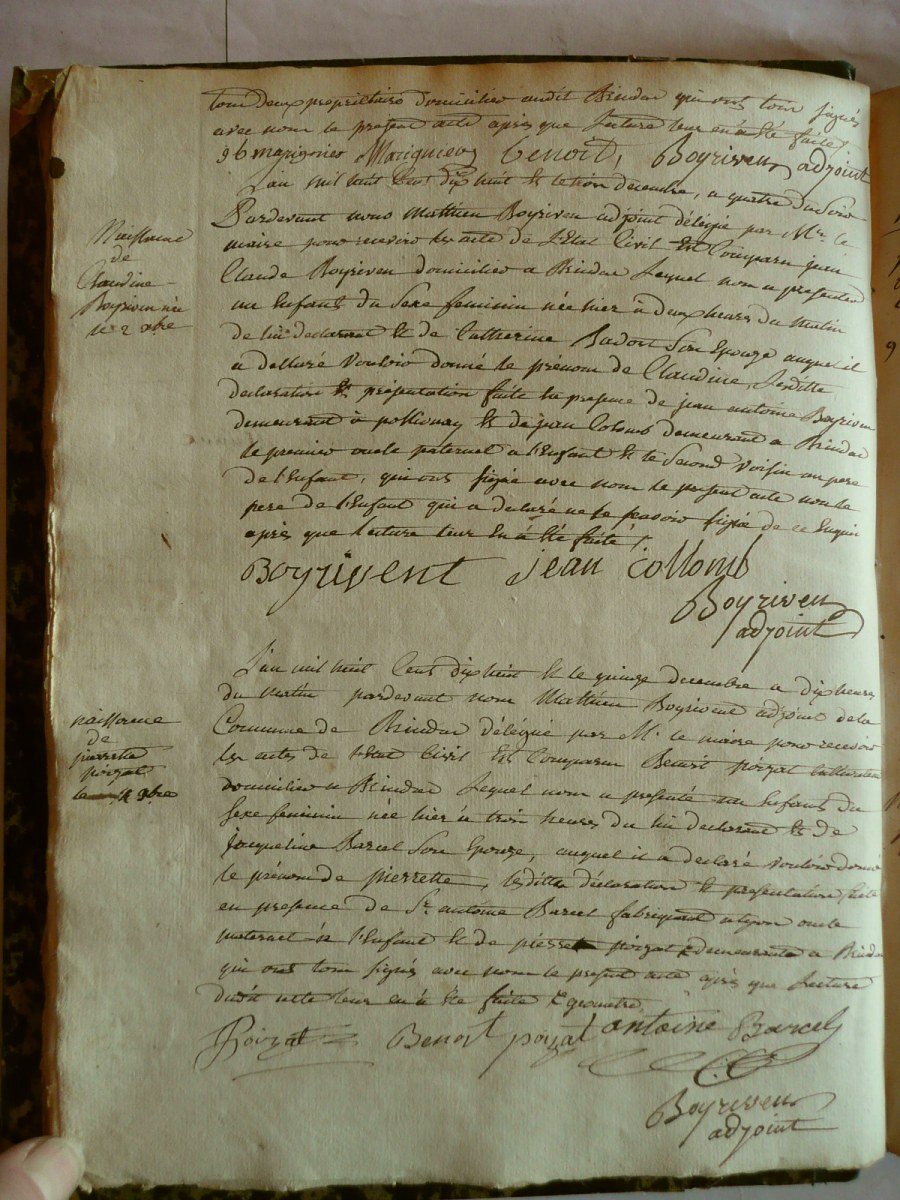 tous deux propriétaires domiciliés audit Brindas qui ont tous signés
avec nous le present acte après que lecture leur en à été faite
Marignier Benoit, Boyriven adjoint
L'an mil huit Cent dix huit & le trois decembre, a quatre du Soir
Pardevant nous Mathieu Boyriven adjoint délégué par Mr. le
maire pour recevoir les acte de L'Etat Civil Est Comparu jean
Claude Boyriven domicilié a Brindas Lequel nous a presenté
un Enfant du Sexe feminin née hier à deux heures du matin
de lui declarant & de Catherine Badoit Son Epouze auquel il
a déllaré Vouloir donné le prénom de Claudine, Lesditte
declaration & présentation faite En presence de jean antoine Boyriven
demeurant à pollionay & de jean Colomb demeurant a Brindas
le premier oncle paternel a l'Enfant & le Second Voisin au pere
de l'Enfant, qui ont signé avec nous le present acte non le
pere de l'Enfant qui a déclaré ne le scavoir signé de ce Enquis
après que lecture leur En à été faite /.
Naissance
de
Claudine
Boyriven née
le 2 xbre
Boyrivent jean Collomb
Boyriven
adjoint
L'an mil huit Cent dix huit & le quinze decembre a dix heures
du matin pardevant nous Mathieu Boyrivent adjoint de la
Commune de Brindas délégué par Mr. le maire pour recevoir
les actes de l'Etat Civil Est Comparu Benoit poizat Cultivateur
domicilié a Brindas Lequel nous a presenté un Enfant du
Sexe feminin née hier à trois heures du lui declarant & de
Jacqueline Barcel Son Epouze, auquel il a declaré Vouloir donné
le prénom de pierrette, lesditte déclaration & presentation faite
en presence de Sr. antoine Barcel fabriquant a Lyon oncle
paternel à l'Enfant & de pierre poizat demeurante a Brindas
qui ont tous signés avec nous le present acte après que lecture
dudit acte leur en à été faite & geomettre
naissance
de
pierrette
poizat
le xbre
Poizat Benoit poizat antoine Barcel
Boyriven
adjoint